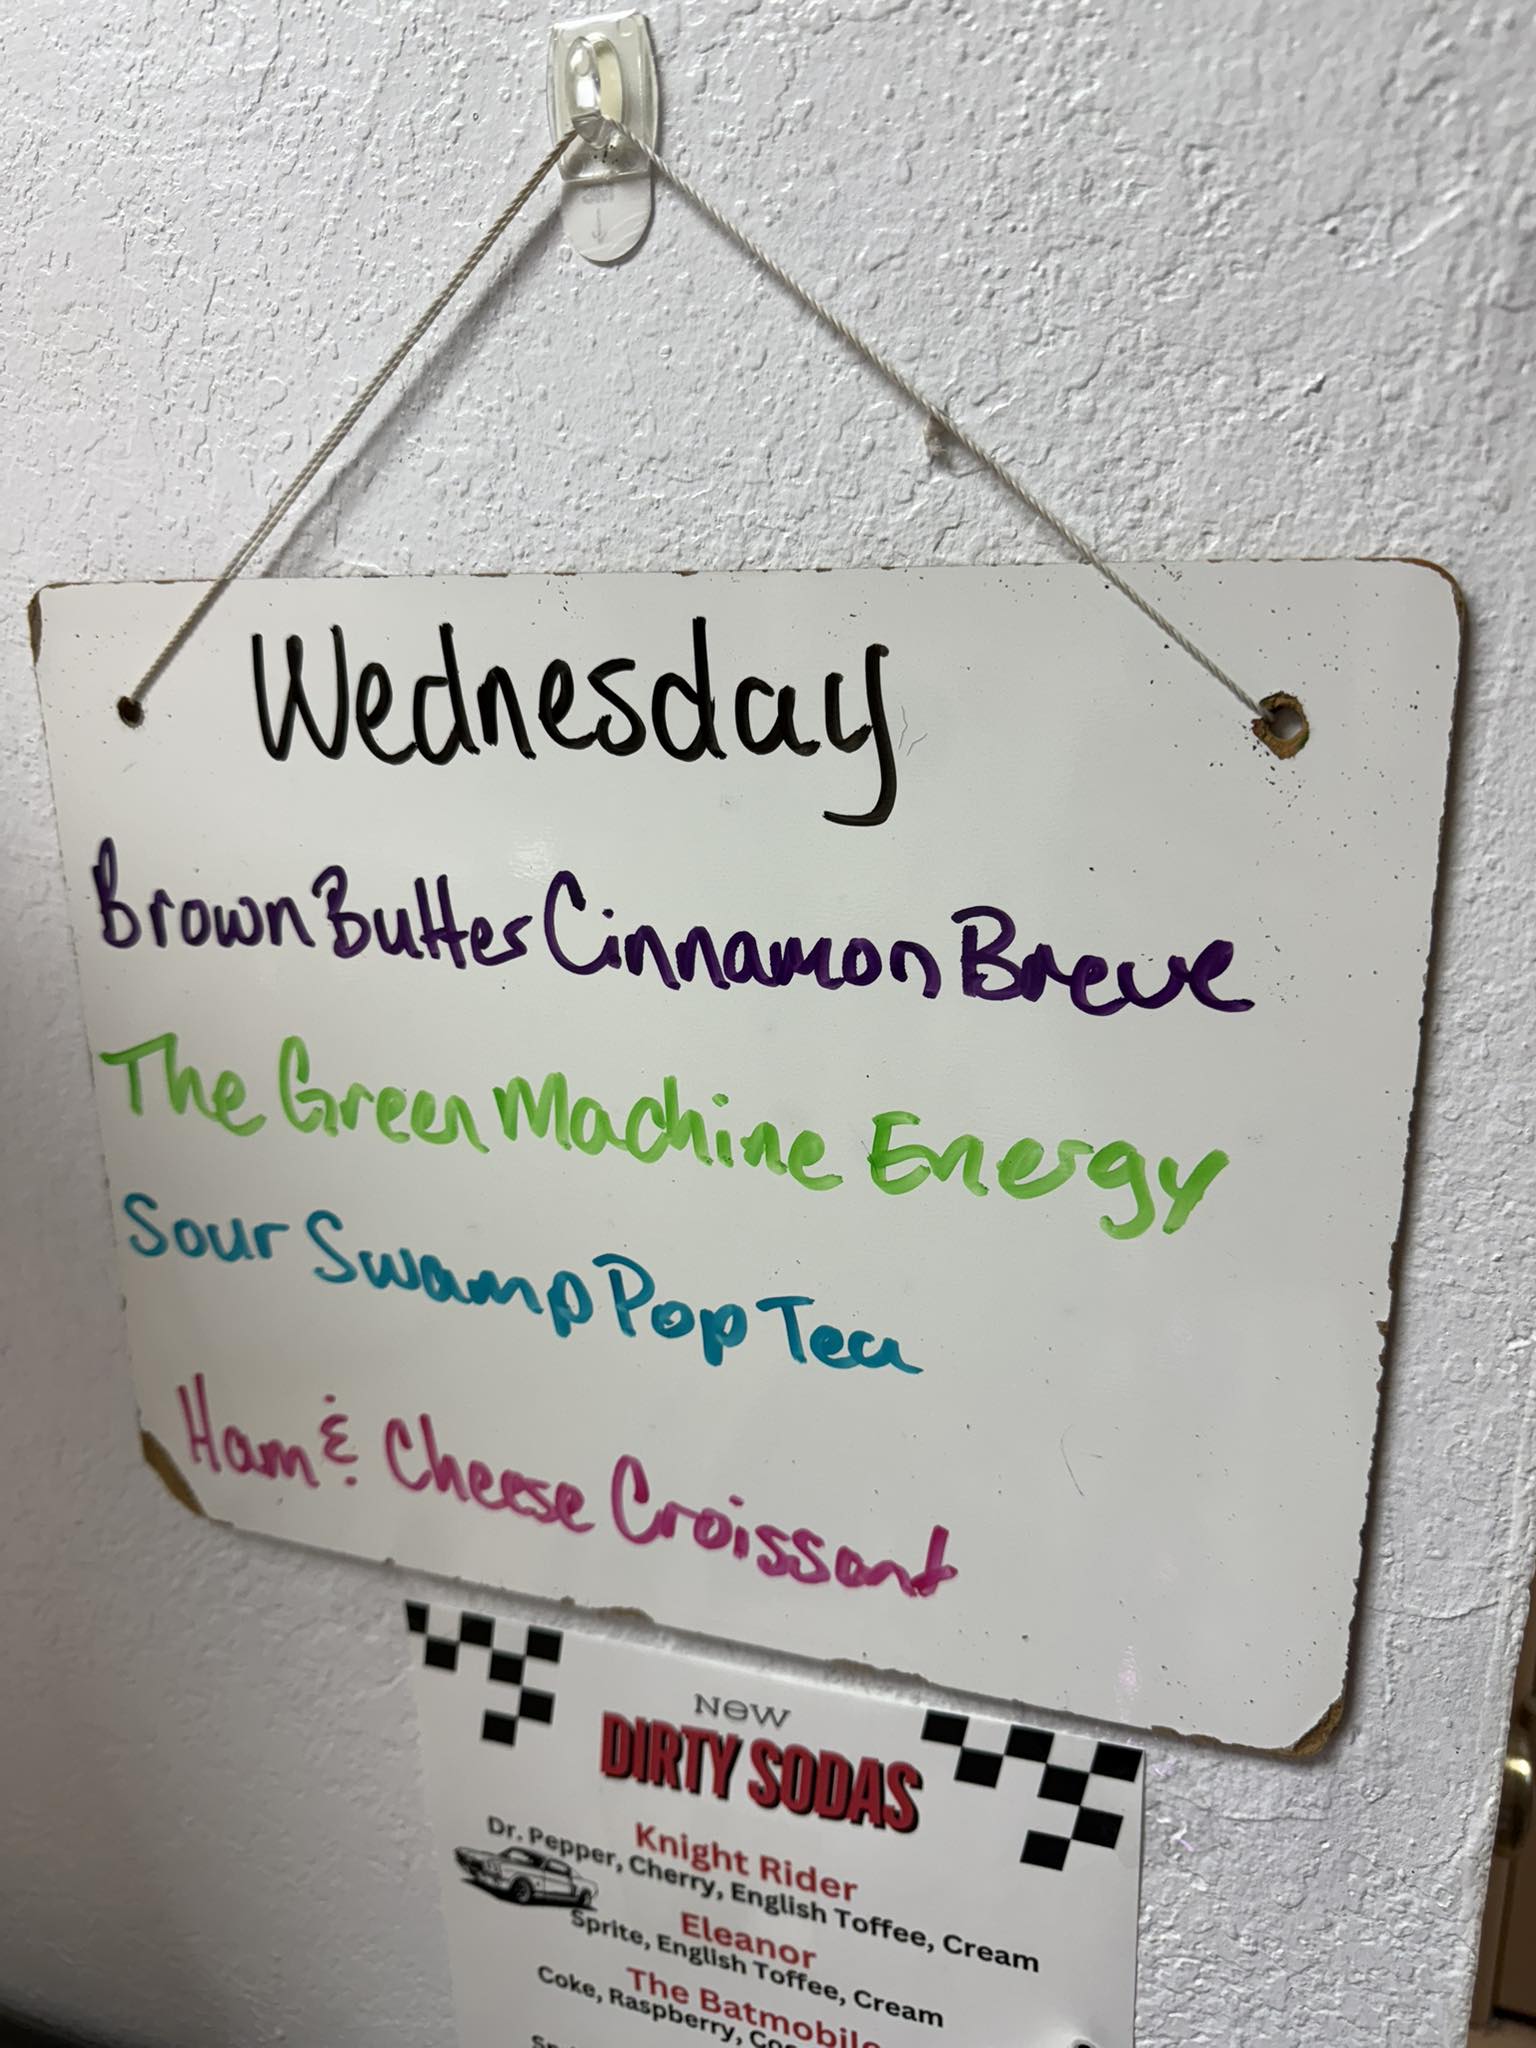 Wednesday
Brown Butter Cinnamon Breve
The Green Machine Energy
Sour Swamp Pop Tea
Ham & Cheese Croissant
NEW
DIRTY SODAS
Knight Rider
Dr. Pepper, Cherry, English Toffee, Cream
Eleanor
Sprite, English Toffee, Cream
The Batmobile
Coke, Raspberry,